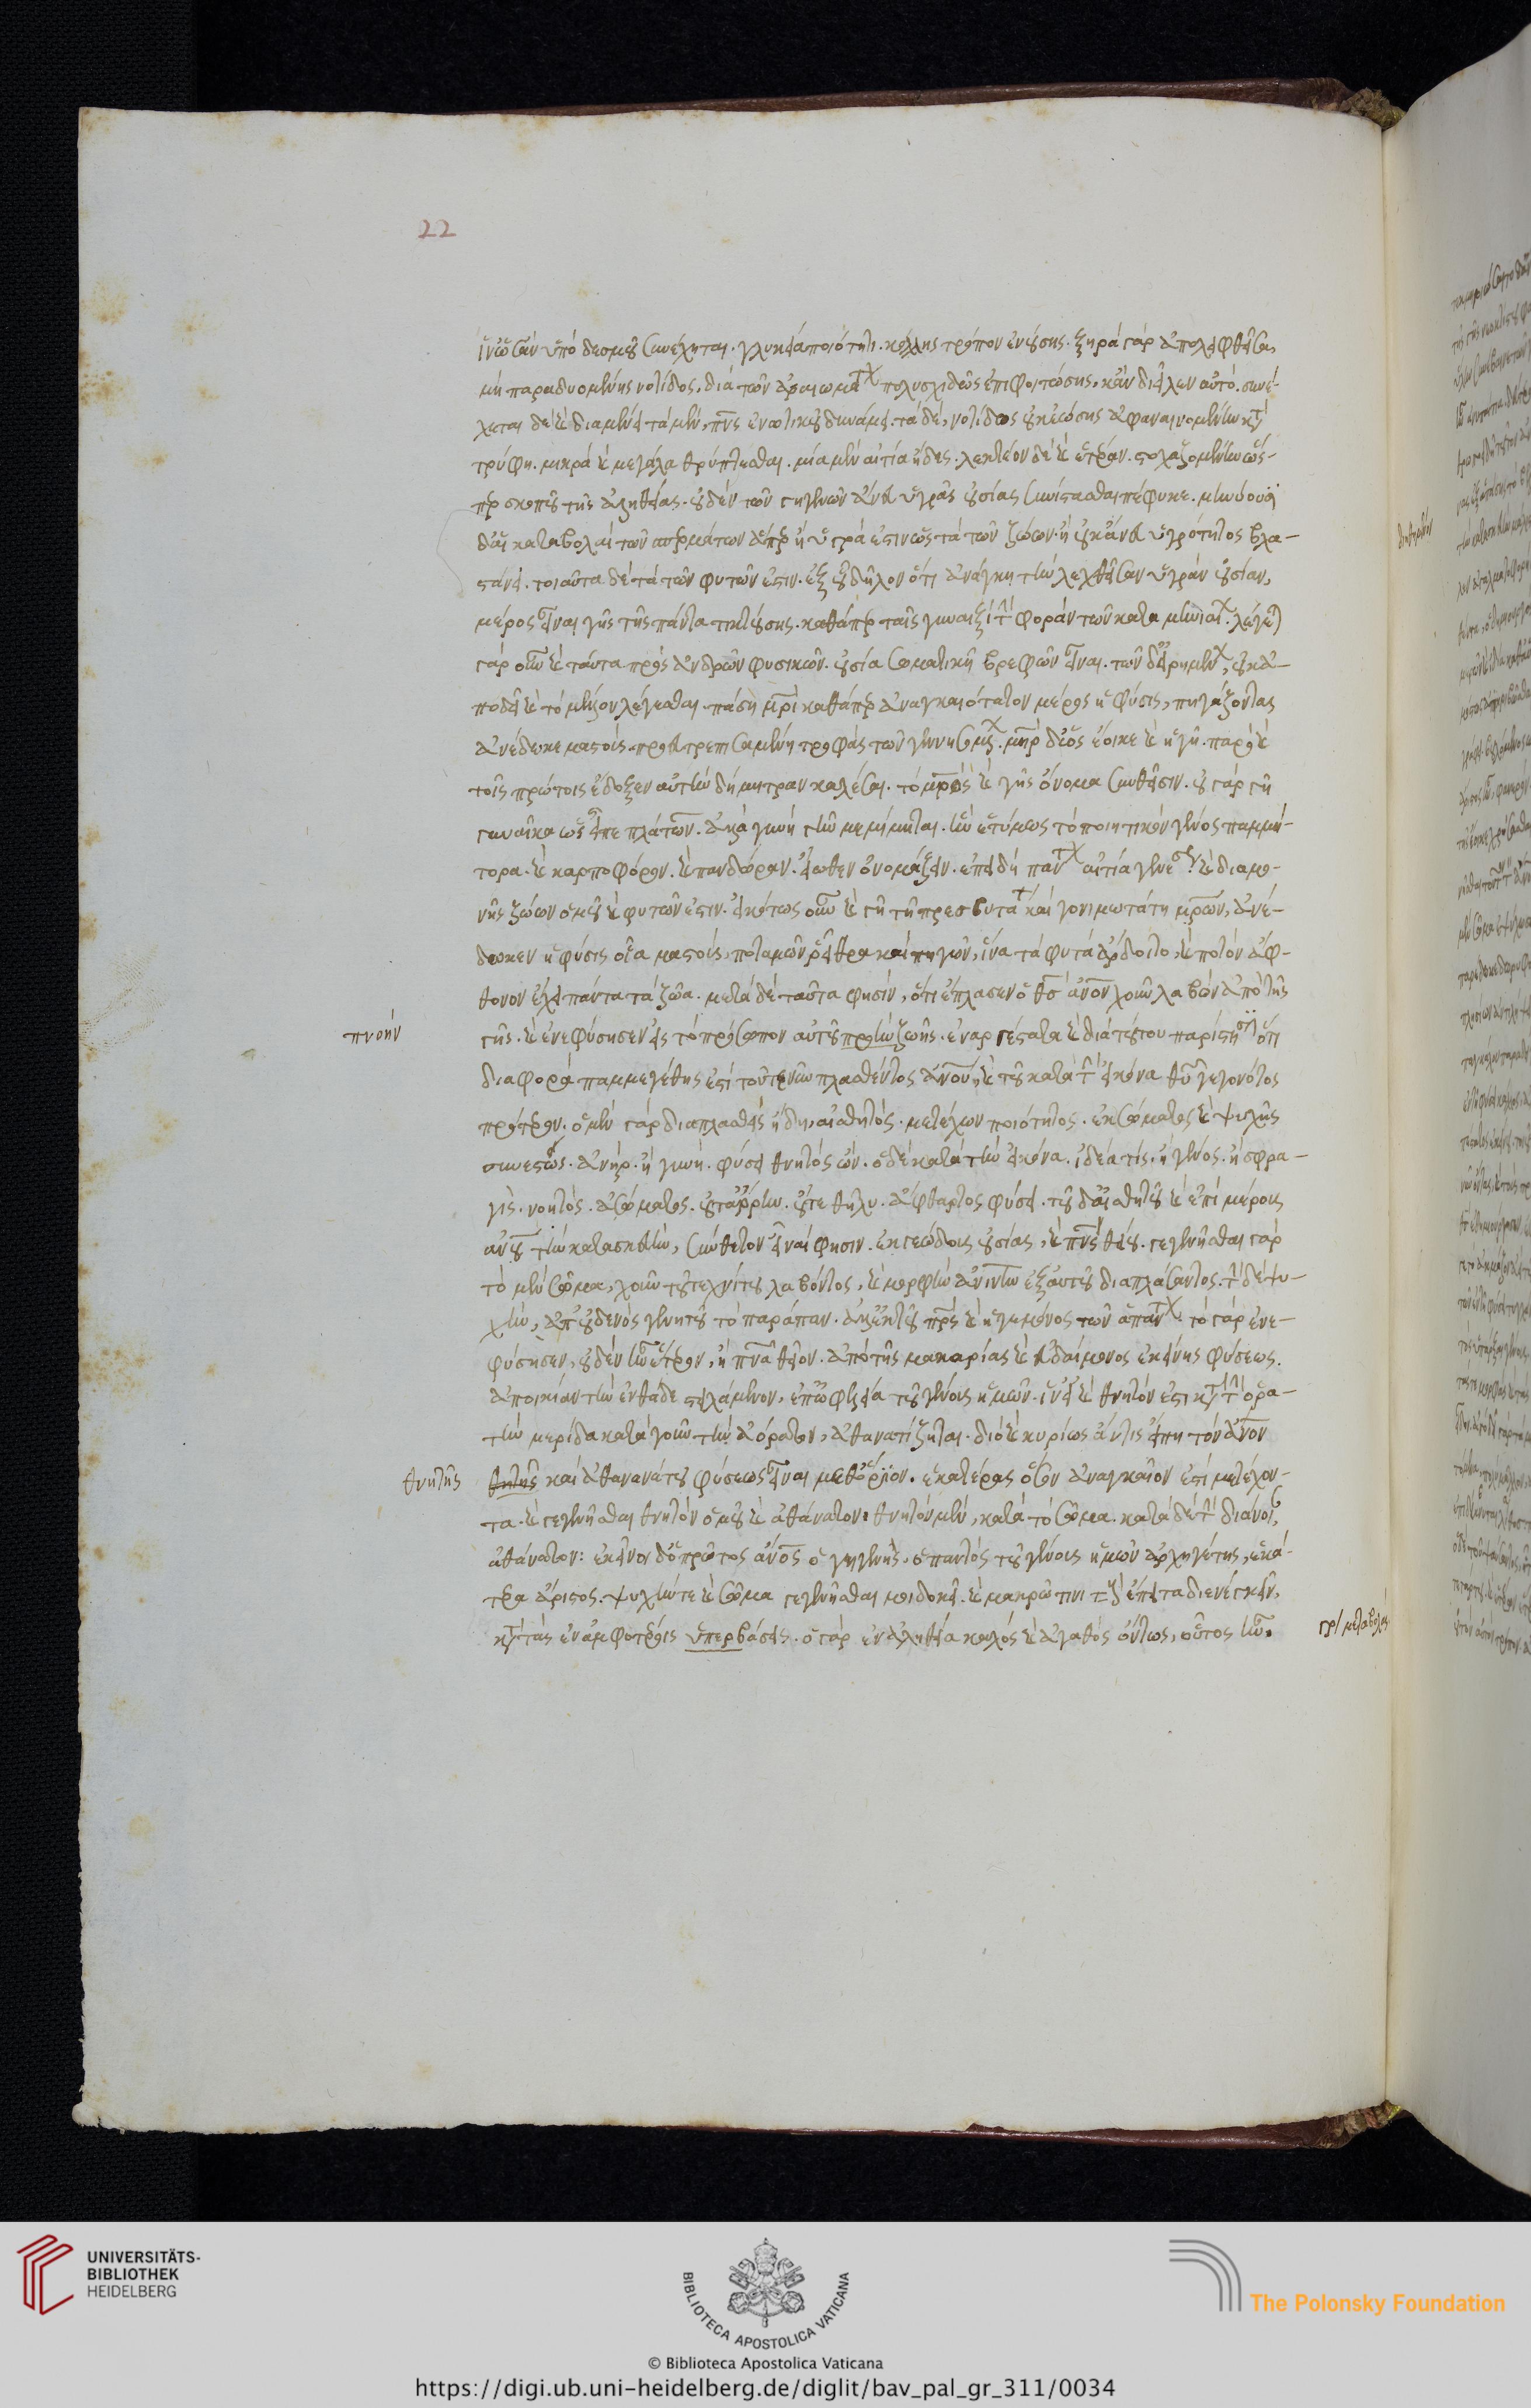 22
ἵν' ὡσὰν ὑπὸ δεσμοῦ συνέχηται. γλυκεία ποιότητι. κόλλης τρόπον ἑνούσης. ξηρὰ γὰρ ἀπολειφθεῖσα,
μὴ παραδυομένης νοτίδος, διὰ τῶν ἀραιωμάτων πολυσχιδῶς ἐπιφοιτώσης, κἂν διεῖλεν αὐτό. συνέ-
χεται δὲ καὶ διαμένει τὰ μὲν, πνς ἑνωτικοῦ δυνάμει. τὰ δὲ, νοτίδος οὐκ ἐώσης ἀφαναινομένην κατὰ
τρύφη. μικρὰ καὶ μεγάλα θρύπτεσθαι. μία μὲν αἰτία ἥδε. λεκτέον δὲ καὶ ἑτέραν. στοχαζομένην ὥς-
περ σκοποῦ τῆς ἀληθείας. οὐδὲν τῶν γηγενῶν ἄνευ ὑγρᾶς οὐσίας συνίστασθαι πέφυκε. μηνύουσι
δ' αἱ καταβολαὶ τῶν σπερμάτων ἅπερ ἢ ὑγρά ἐστιν ὡς τὰ τῶν ζώων. ἢ οὐκ ἄνευ ὑγρότητος βλα-
στάνει. τοιαῦτα δὲ τὰ τῶν φυτῶν ἐστιν. ἐξ οὗ δῆλον ὅτι ἀνάγκη τὴν λεχθεῖσαν ὑγρὰν οὐσίαν,
μέρος εἶναι γῆς τῆς πάντα τικτούσης. καθάπερ ταῖς γυναιξὶ τὴν φορὰν τῶν καταμηνίων. λέγεται
γὰρ οὖν καὶ ταῦτα πρὸς ἀνδρῶν φυσικῶν. οὐσία σωματικὴ βρεφῶν εἶναι. τῶν δ' εἰρημένων, οὐκ ἀ-
πᾴδει καὶ τὸ μέλλον λέγεσθαι. πάσῃ μρὶ καθάπερ ἀναγκαιότατον μέρος ἡ φύσις, πηγάζοντας
ἀνέδωκε μαστούς. προευτρεπισαμένη τροφὰς τῷ γεννησομένῳ. μηρ δ' ὡς ἔοικε καὶ ἡ γῆ. παρὸ καὶ
τοῖς πρώτοις ἔδοξεν αὐτὴν δήμητραν καλέσαι. τὸ μρὸς καὶ γῆς ὄνομα συνθεῖσιν. οὐ γὰρ γῆ
γυναῖκα ὡς εἶπε πλάτων. ἀλλὰ γυνὴ γῆν μεμίμηται. ἣν ἐτύμως τὸ ποιητικὸν γένος παμμή-
τορα. καὶ καρποφόρον. καὶ πανδώραν. εἴωθεν ὀνομάζειν. ἐπειδὴ πάντων αἰτία γενέσεως καὶ διαμο-
νῆς ζώων ὁμοῦ καὶ φυτῶν ἐστιν. εἰκότως οὖν καὶ γῇ τῇ πρεσβυτάτῃ καὶ γονιμωτάτῃ μρων, ἀνέ-
δωκεν ἡ φύσις οἷα μαστούς, ποταμῶν ῥεῖθρα καὶ πηγῶν, ἵνα τὰ φυτὰ ἄρδοιτο, καὶ ποτὸν ἄφ-
θονον ἔχει πάντα τὰ ζῶα. μετὰ δὲ ταῦτα φησὶν, ὅτι ἔπλασεν ὁ θς ἄνον χοῦν λαβὼν ἀπὸ τῆς
γῆς. καὶ ἐνεφύσησεν εἰς τὸ πρόσωπον αὐτοῦ πρην ζωῆς. ἐναργέστατα καὶ διὰ τούτου παρίστησιν ὅτι
πνοὴν
διαφορὰ παμμεγέθης ἐστὶ τοῦτε νῦν πλασθέντος ἀνου, καὶ τοῦ κατὰ τὴν εἰκόνα θυ γεγονότος
πρότερον. ὁ μὲν γὰρ διαπλασθεὶς ἤδη, αἰσθητὸς. μετέχων ποιότητος. ἐκ σώματος καὶ ψυχῆς
συνεστὼς. ἀνὴρ. ἢ γυνὴ. φύσει θνητὸς ὤν. ὁ δὲ κατὰ τὴν εἰκόνα. ἰδέα τὶς. ἢ γένος. ἢ σφρα-
γὶς. νοητὸς. ἀσώματος. οὔτ' ἄρρην. οὔτε θῆλυ. ἄφθαρτος φύσει. τοῦ δ' αἰσθητοῦ καὶ ἐπὶ μέρους
ἀνου τὴν κατασκευὴν, σύνθετον εἶναί φησιν. ἐκ γεώδους οὐσίας, καὶ πνς θείου. γεγενῆσθαι γὰρ
τὸ μὲν σῶμα, χοῦν τοῦ τεχνίτου λαβόντος, καὶ μορφὴν ἀνίνην ἐξ αὐτοῦ διαπλάσαντος. τὴν δὲ ψυ-
χὴν, ἀπ' οὐδενὸς γενητοῦ τὸ παράπαν. ἀλλ' ἐκ τοῦ πρς καὶ ἡγεμόνος τῶν ἁπάντων. τὸ γὰρ ἐνε-
φύσησεν, οὐδὲν ἦν ἕτερον, ἢ πνα θεῖον. ἀπὸ τῆς μακαρίας καὶ εὐδαίμονος ἐκείνης φύσεως.
ἀποικίαν τὴν ἐνθάδε στειλάμενον, ἐπ' ὠφελεία τοῦ γένους ἡμῶν. ἵν' εἰ καὶ θνητόν ἐστι κατὰ τὴν ὁρα-
τὴν μερίδα κατὰ γοῦν τὴν ἀόρατον, ἀθανατίζηται. διὸ καὶ κυρίως ἄν τις εἴπῃ τὸν ἄνον
θνητῆς
θητῆς καὶ ἀθανανάτου φύσεως εἶναι μεθόριον. ἑκατέρας ὅσον ἀναγκαῖον ἐστὶ μετέχον-
τα. καὶ γεγενῆσθαι θνητὸν ὁμοῦ καὶ ἀθάνατον. θνητὸν μὲν, κατὰ τὸ σῶμα. κατὰ δὲ τὴν διάνοιαν,
ἀθάνατον: ἐκεῖνος δ' ὁ πρῶτος ἄνος ὁ γηγενὴς. ὁ παντὸς τοῦ γένους ἡμῶν ἀρχηγέτης, ἑκά-
τερα ἄριστος. ψυχήν τε καὶ σῶμα γεγενῆσθαι μοι δοκεῖ. καὶ μακρῷ τινι τοὺς ἔπειτα διενέγκεῖν,
κατὰ τὰς ἐν ἀμφοτέροις ὑπερβάσεις. ὁ γὰρ ἐν ἀληθεία καλὸς καὶ ἀγαθὸς ὄντως, οὗτος ἦν.
γρ/ μεταβολὰς
UNIVERSITÄTS-
BIBLIOTHEK
HEIDELBERG
BIBLIOTECA APOSTOLICA VATICANA
The Polonsky Foundation
© Biblioteca Apostolica Vaticana
https://digi.ub.uni-heidelberg.de/diglit/bav_pal_gr_311/0034